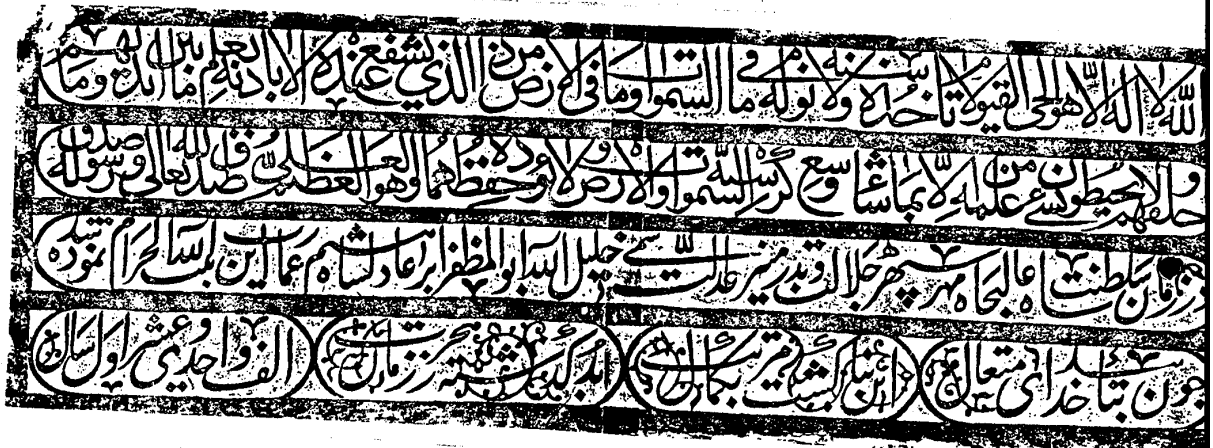 الله لا اله الا هو الحی القیوم لا تاخذه سنة ولا نوم له ما فی السموات وما فی الارض من ذا الذی یشفع عنده الا باذنه یعلم ما بین ایدیهم وما
خلفهم ولا یحیطون بشیء من علمه الا بما شاء وسع کرسیه السموات والارض ولا یؤده حفظهما وهو العلی العظیم صدق الله تعالی وصدق رسوله
در زمان سلطنت شاه عالیجاه مهر سپهر جلالت و بدر منیر عدالت سمی خلیل الله ابو المظفر ابراهیم عادلشاه این بیت الله الحرام نموده شد
چون بتائید خدای متعال این بنا گشت قریب بکمال الف و احدی و عشر اول سال